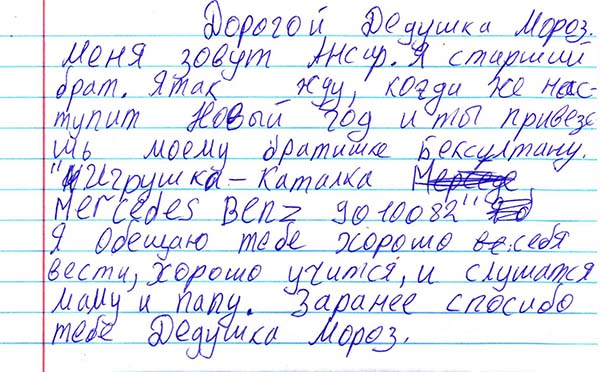 Дорогой Дедушка Мороз.
Меня зовут Ансар. Я старший
брат. Я так жду, когда же нас-
тупит Новый год и ты привезе
шь моему братишке Бексултану.
"Игрушка - каталка
Mercedes Benz 9010082"
Я обещаю тебе хорошо себя
вести, хорошо учится, и слушатся
маму и папу. Заранее спосибо
тебе Дедушка Мороз.